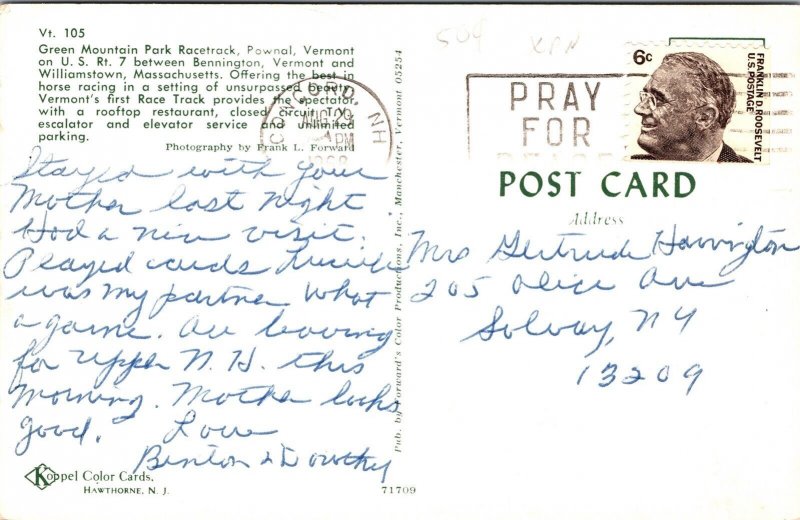 Vt. 105
Green Mountain Park Racetrack, Pownal, Vermont
on U. S. Rt. 7 between Bennington, Vermont and
Williamstown, Massachusetts. Offering the best in
horse racing in a setting of unsurpassed beauty.
Vermont's first Race Track provides the spectator
with a rooftop restaurant, closed circuit T.V.,
escalator and elevator service and unlimited
parking.
Photography by Frank L. Forward
Stayed with your
Mother last night
Had a nice visit.
Played cards Lucille
was my partner What
a game. Are leaving
for upper N. H. this
morning. Mother looks
good. Love
Benton & Dorothy
Koppel Color Cards.
HAWTHORNE, N. J.
71709
Pub. by Forward's Color Productions, Inc., Manchester, Vermont 05254
CONCORD, NH
AUG 29
PM
1968
509 XPN
PRAY
FOR
PEACE
6c
FRANKLIN D. ROOSEVELT
U.S. POSTAGE
POST CARD
Address
Mrs Gertrude Harrington
205 Alice Ave
Solvay, NY
13209